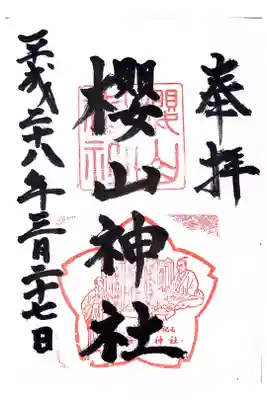 奉拝
櫻山神社
平成二十八年三月二十七日
櫻山神社
神社